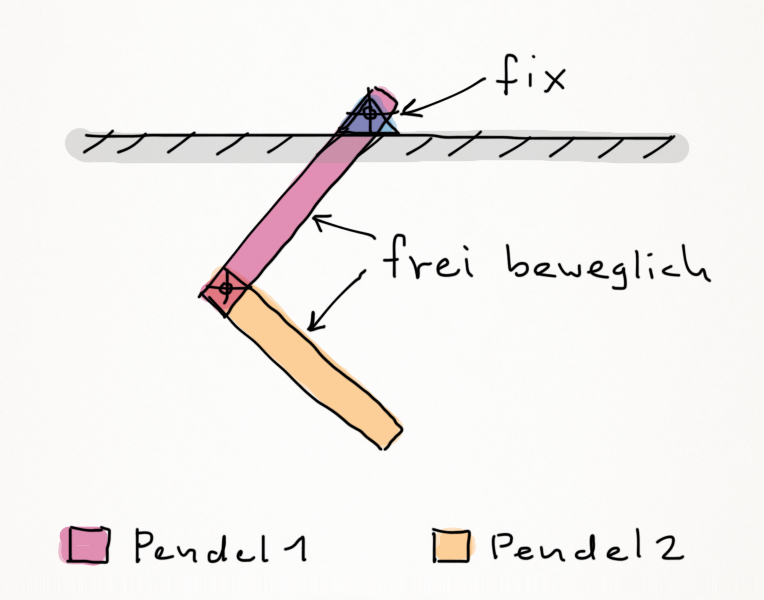 fix
frei beweglich
Pendel 1
Pendel 2